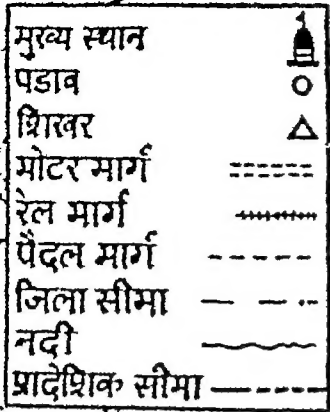 मुख्य स्थान
पडाव
शिखर
मोटर मार्ग
रेल मार्ग
पैदल मार्ग
जिला सीमा
नदी
प्रादेशिक सीमा